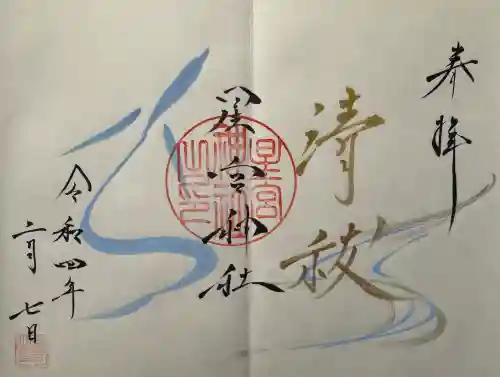 奉拝
清祓
星宮神社
星宮
神社
之印
令和四年
二月七日